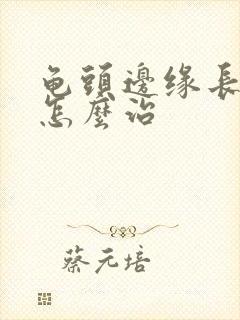 龟頭邊缘長
怎麼治
蔡元培